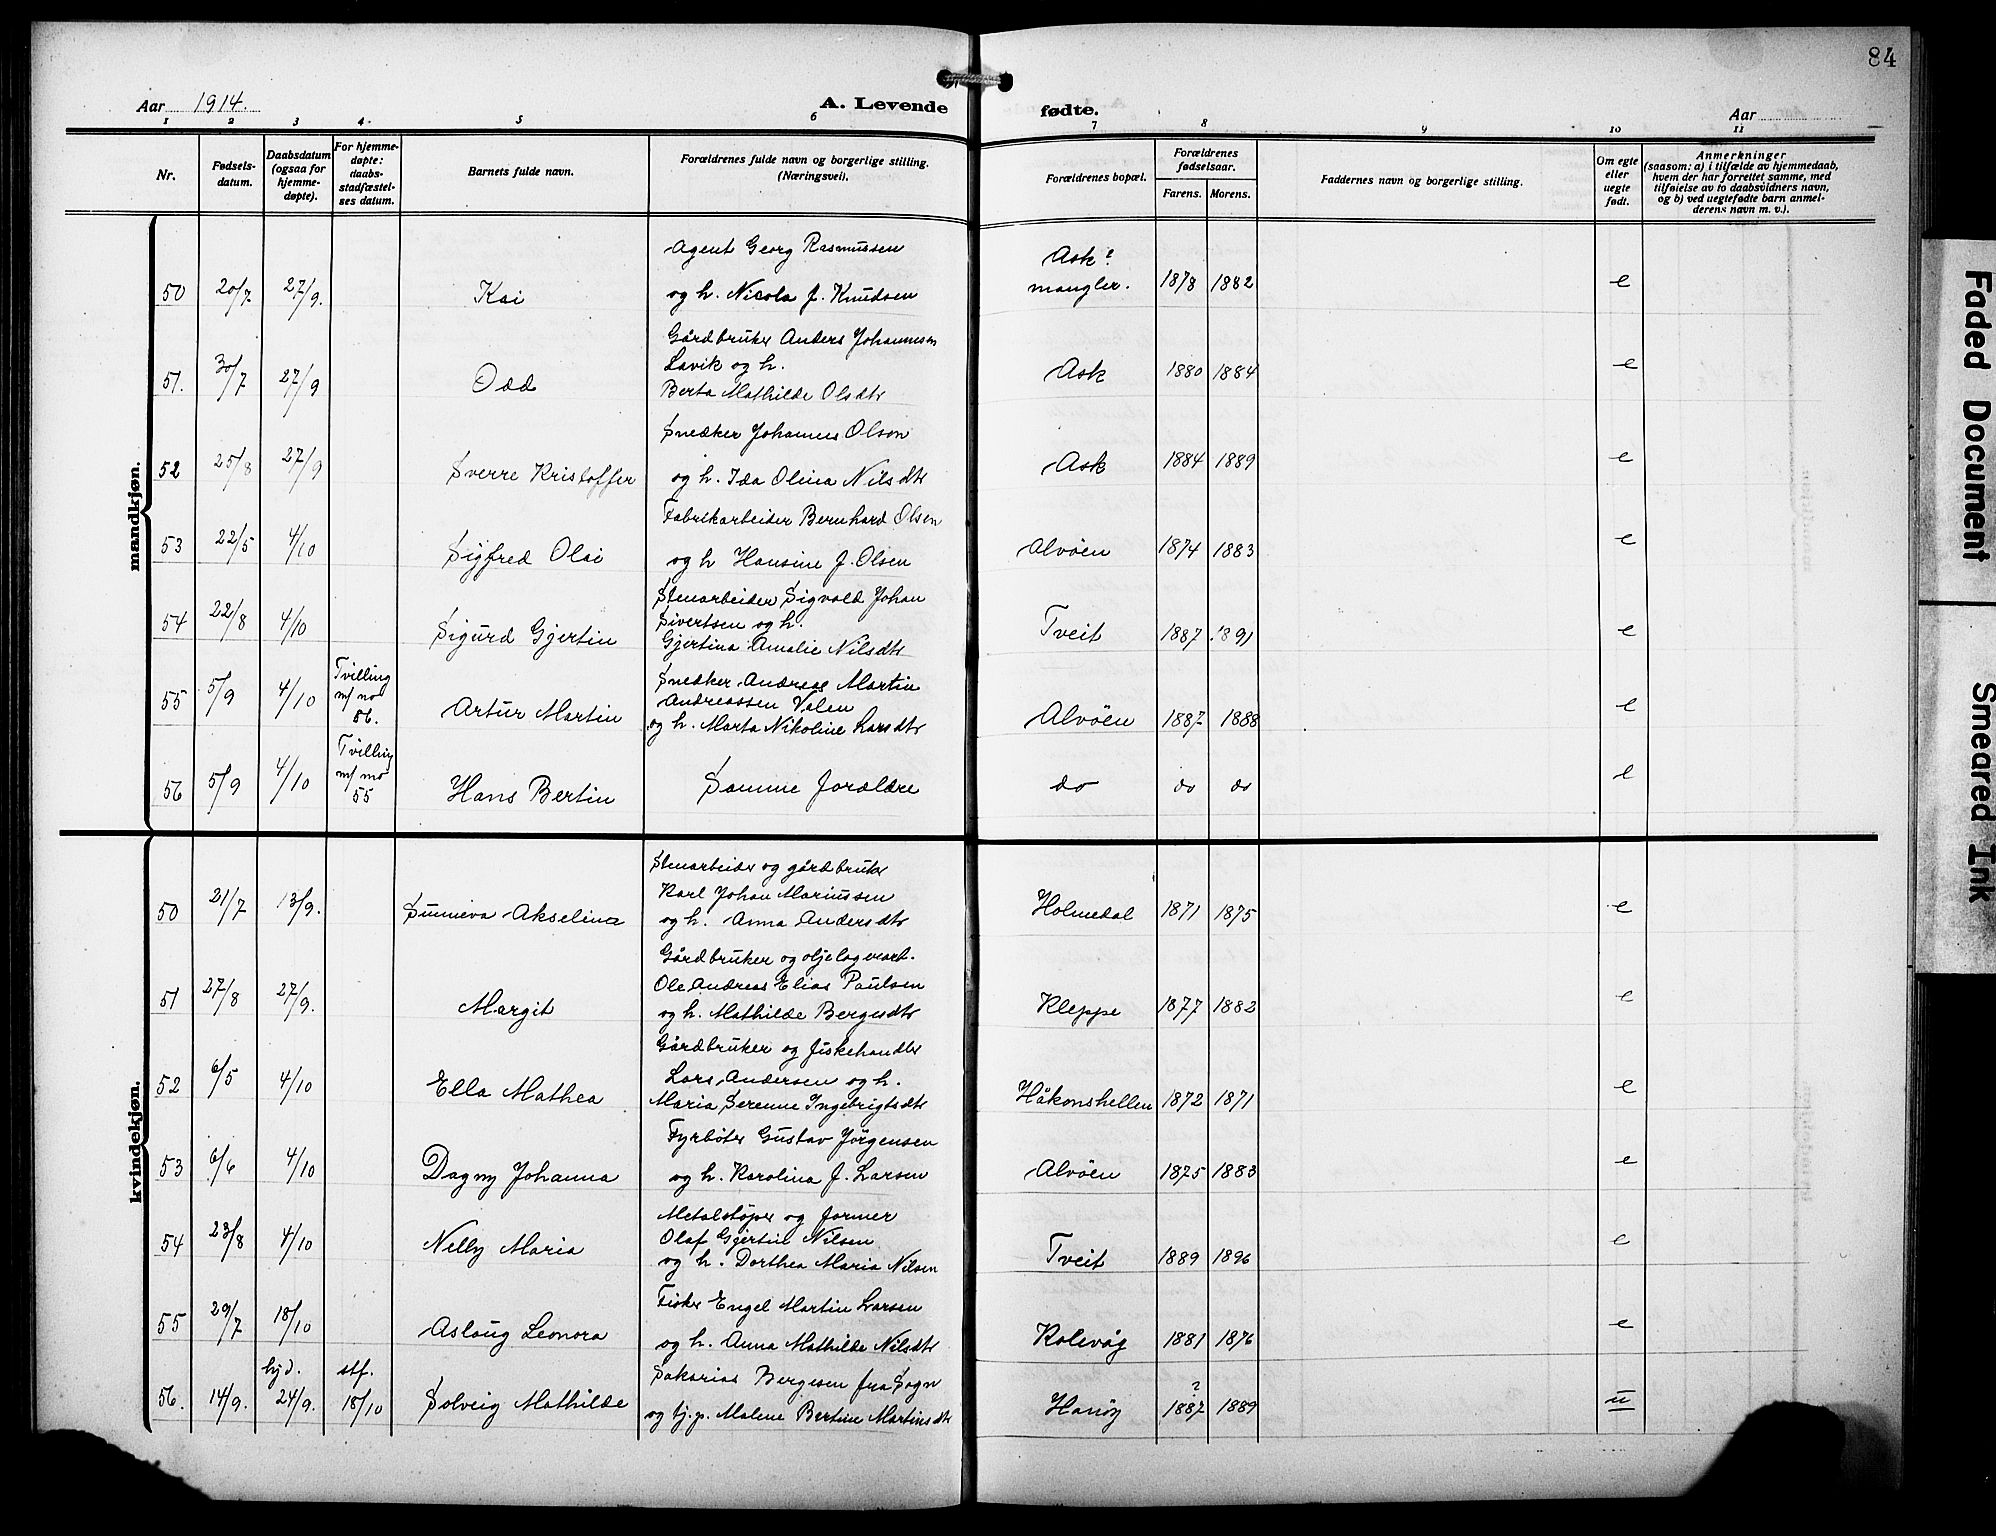 84
Aar 1914.
A. Levende fødte.
Aar
1 2 3 4 5 6 7 8 9 10 11
Nr.
Fødsels-
datum.
Daabsdatum
(ogsaa for
hjemme-
døpte).
For hjemme-
døpte:
daabs-
stadfæstel-
ses datum.
Barnets fulde navn.
Forældrenes fulde navn og borgerlige stilling.
(Næringsvei).
Forældrenes bopæl.
Forældrenes
fødselsaar.
Farens. Morens.
Faddernes navn og borgerlige stilling.
Om egte
eller
uegte
født.
Anmerkninger
(saasom: a) i tilfælde av hjemmedaab,
hvem der har forrettet samme, med
tilføielse av to daabsvidners navn,
og b) ved uegtefødte barn anmel-
derens navn m. v.).
mandkjøn.
Agent Georg Rasmussen Ask?
50 20/7 27/9. Kai og h. Nicola J. Knudsen mangler. 1878 1882 e
Gårdbruker Anders Johannesen
Lavik og h.
51. 30/7 27/9 Odd Berta Mathilde Olsdtr Ask 1880 1884 e
Snedker Johannes Olson
52 25/8 27/9 Sverre Kristoffer og h. Ida Olina Nilsdtr Ask 1884 1889 e
Fabrikarbeider Bernhard Olsen
53 22/5 4/10 Sigfred Olai og h Hansine J. Olsen Alvöen 1874 1883 e
Stenarbeider Sigvald Johan
Sivertsen og h.
54 22/8 4/10 Sigurd Gjertin Gjertina Amalie Nilsdtr Tveit 1887 1891 e
Tvilling
m/ no
56.
Snedker Andreas Martin
Andreassen Valen
55 5/9 4/10 Artur Martin og h. Marta Nikoline Larsdtr Alvöen 1887 1888 e
Tvilling
m/ no
55
56 5/9 4/10 Hans Bertin Samme forældre do do do e
kvindekjøn.
Stenarbeider og gårdbruker
Karl Johan Mariussen
50 21/7 13/9. Sunneva Akselina og h. Anna Andersdtr Holmedal 1871 1875 e
Gårdbruker og oljelagveart.
Ole Andreas Elias Paulsen
51 27/8 27/9. Margit og h. Mathilde Bergesdtr Kleppe 1877 1882 e
Gårdbruker og fiskehandler
Lars Andersen og h.
52 6/5 4/10 Ella Mathea Maria Serenne Ingebrigtsdtr Håkonshellen 1872 1871 e
Fyrböter Gustav Jörgensen
53 6/6 4/10 Dagny Johanna og h. Karolina J. Larsen Alvöen 1875 1883 e
Metalstöper og former
Olaf Gjertin Nilsen
54 23/8 4/10 Nelly Maria og h. Dorthea Maria Nilsen Tveit 1889 1896 e
Fisker Engel Martin Larsen
55 29/7 18/10 Aslaug Leonora og h. Anna Mathilde Nilsdtr Kolevåg 1881 1876 e
hjd. stf. Sakarias Bergesen fra Sogn ?
56. 14/9. 24/9. 18/10 Solveig Mathilde og tj. p. Malene Bertine Martinsdtr Hanöy 1887 1889 u
Faded Document
Smeared Ink